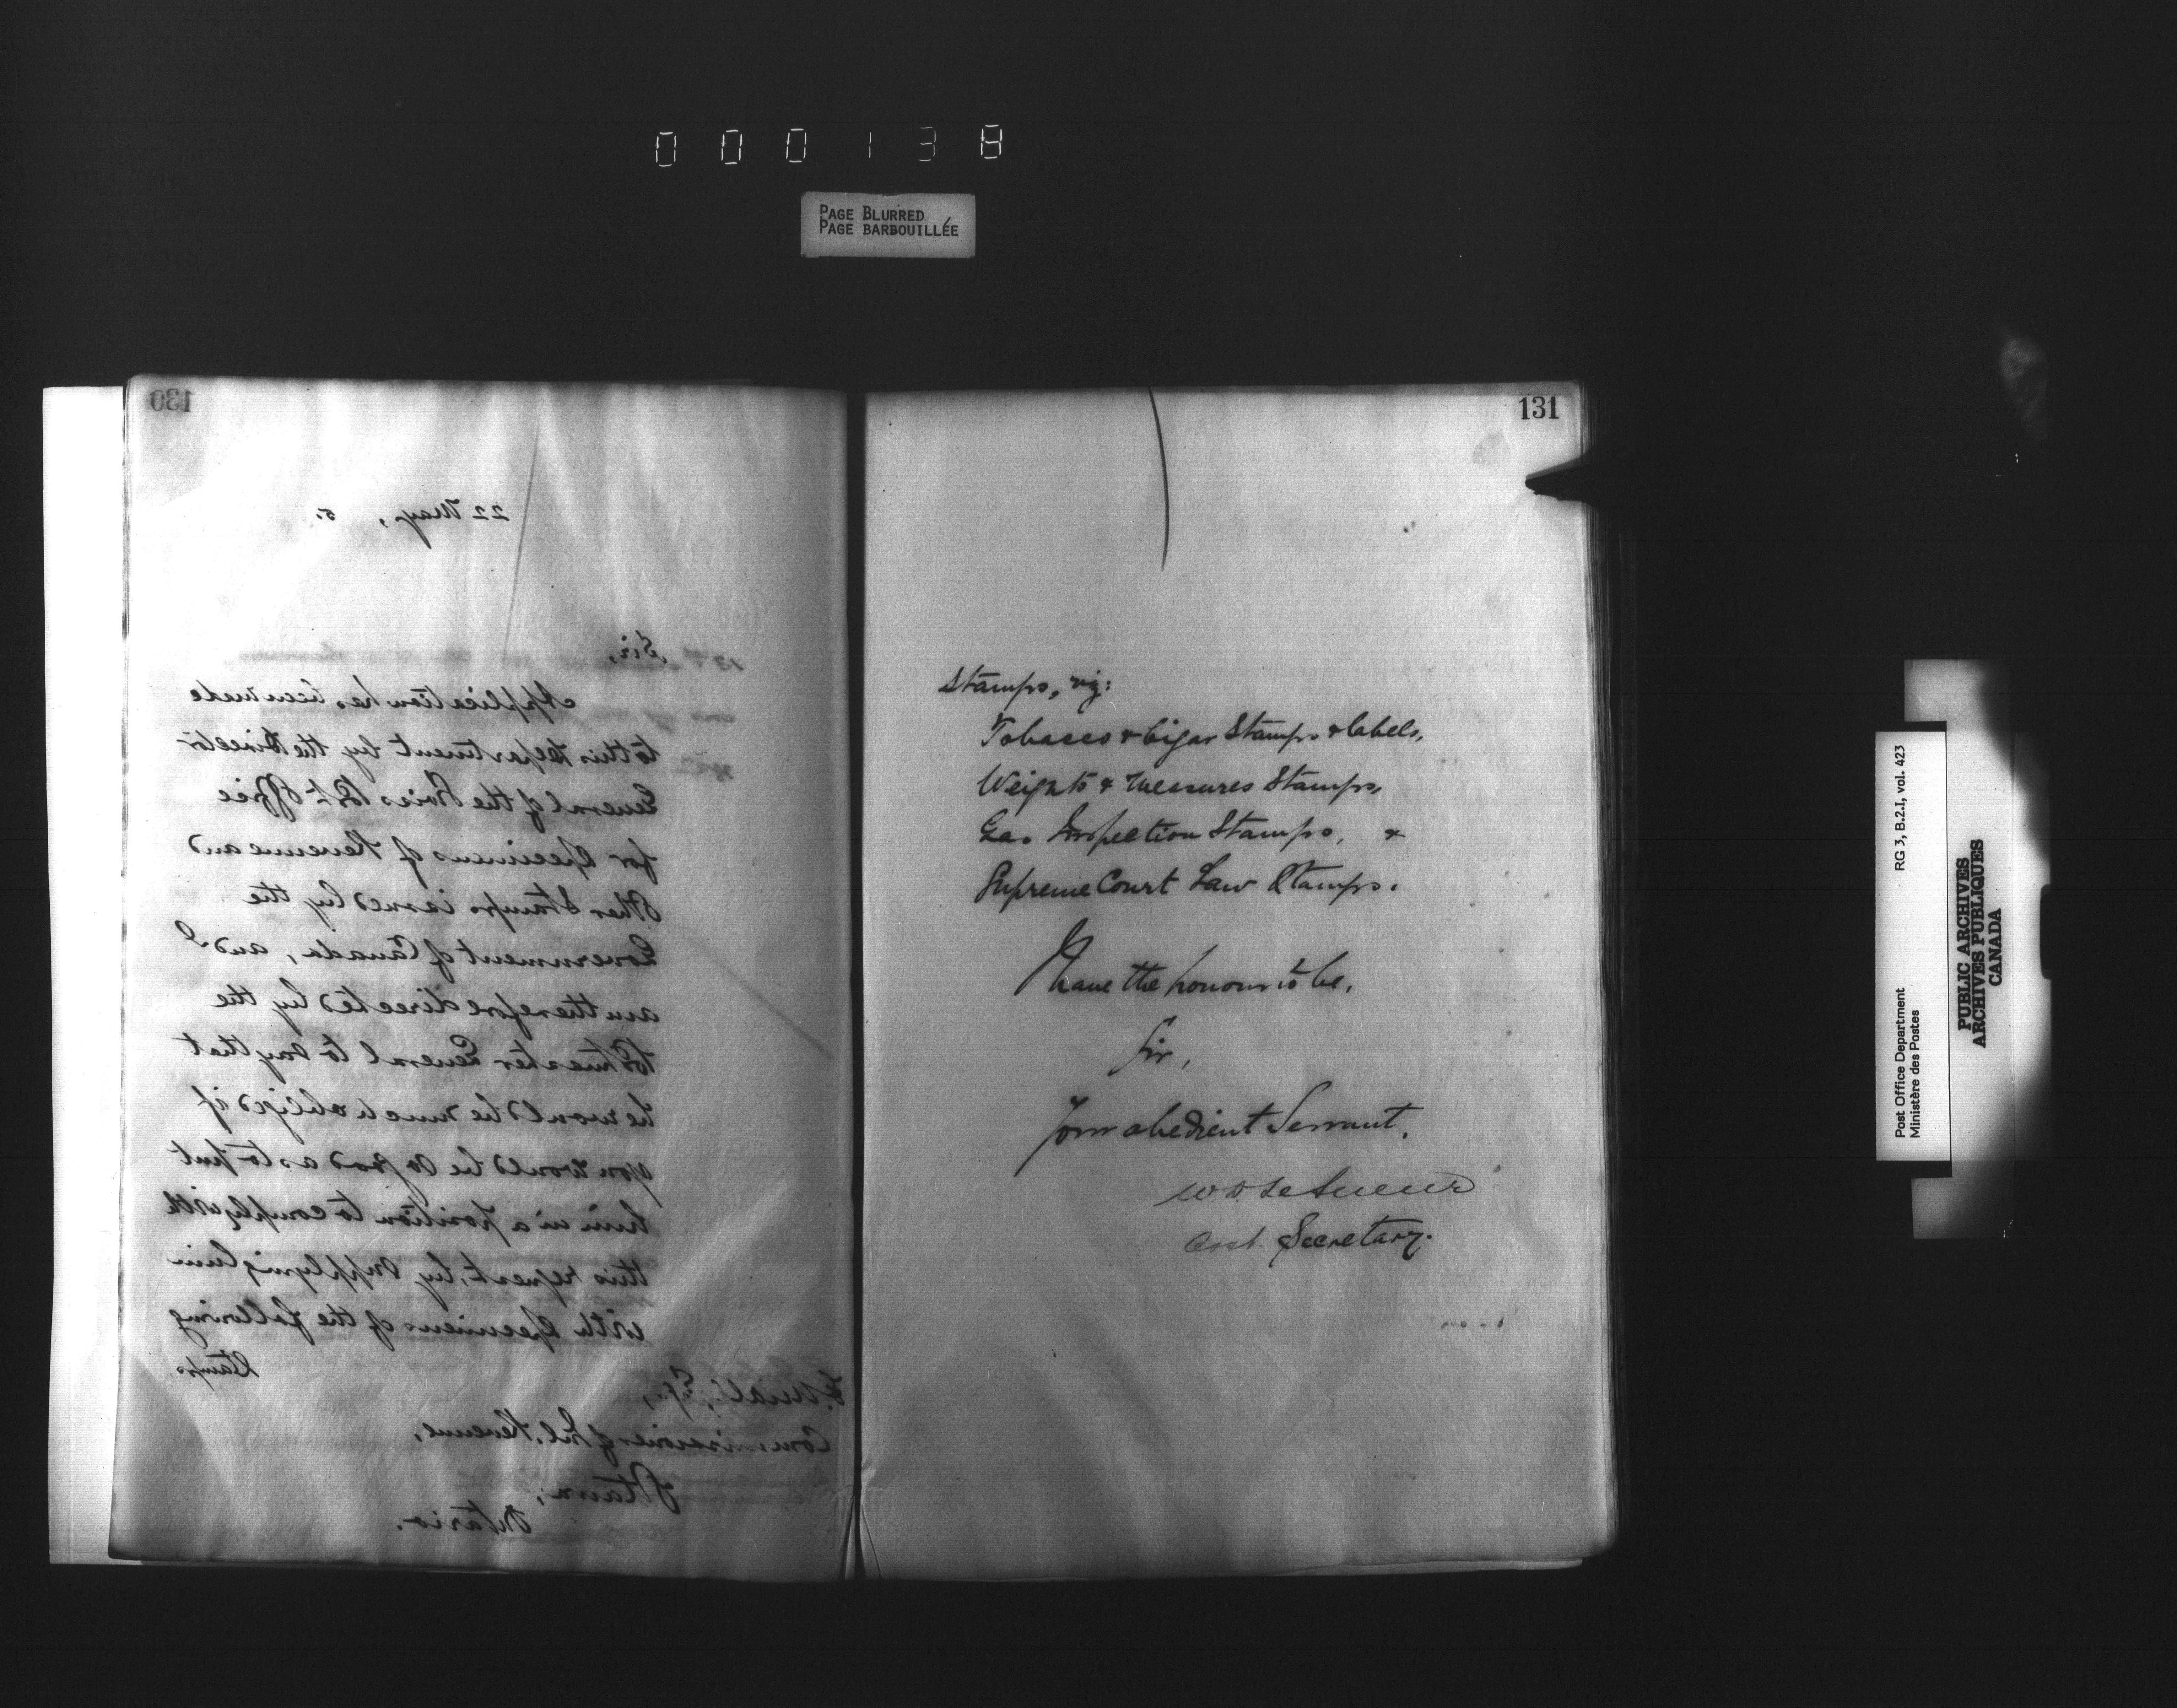 000138
PAGE BLURRED
PAGE BARBOUILLÉE
130
22 May, 5.
Sir,
Application has been made
to this Department by the Director
General of the Swiss Post Office
for Specimens of Revenue and
Other Stamps issued by the
Government of Canada, and I
am therefore directed by the
Postmaster General to say that
he would be much obliged if
you would be so good as to put
him in a position to comply with
this request, by supplying him
with Specimens of the following
Stamps
Miall, Esq.,
Commissioner of Inl. Revenue,
Ottawa,
Ontario.
131
Stamps, viz:
Tobacco & Cigar Stamps & labels,
Weights & Measures Stamps,
Gas Inspection Stamps, &
Supreme Court Law Stamps.
I have the honour to be,
Sir,
Your obedient Servant,
W. D. LeSueur
Secretary.
Post Office Department
Ministère des Postes
RG 3, B.2.I, vol. 423
PUBLIC ARCHIVES
ARCHIVES PUBLIQUES
CANADA